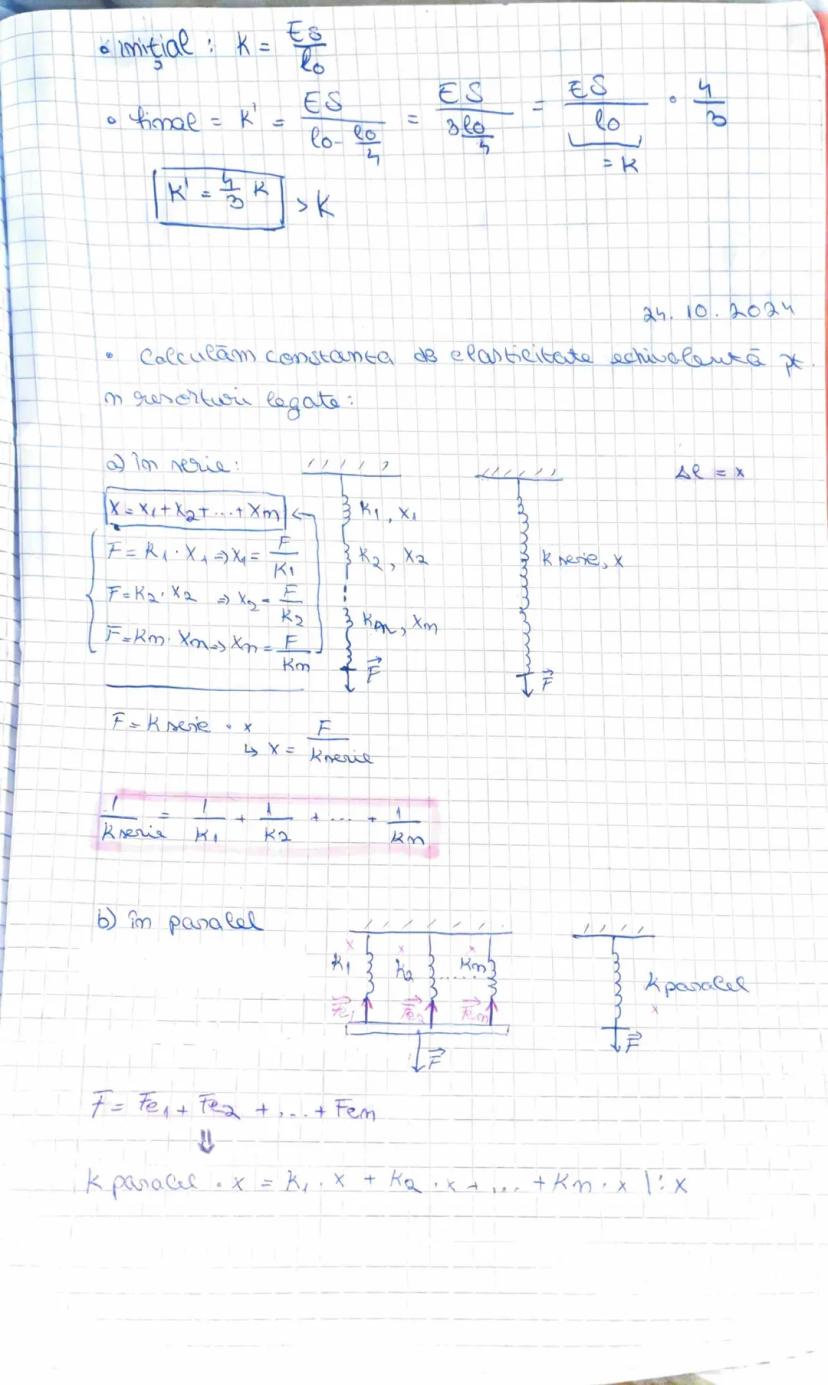 • inițial : K = ES / l0
• final = K' = ES / (l0 - l0/4) = ES / (3l0/4) = ES / l0 · 4/3
= K
K' = 4/3 K > K
24. 10. 2024
• Calculăm constanta de elasticitate echivalentă pt.
n resorturi legate:
a) în serie:
Δl = x
X = x1 + x2 + ... + xn
K1, x1
F = K1 · x1 => x1 = F / K1
K2, x2
K serie, x
F = K2 · x2 => x2 = F / K2
Kn, xn
F = Kn · xn => xn = F / Kn
F
F
F = K serie · x
↳ x = F / K serie
1 / K serie = 1 / K1 + 1 / K2 + ... + 1 / Kn
b) în paralel
x x x
K1 K2 ..... Kn
K paralel
x
Fe1 Fe2 Fen
F
F
F = Fe1 + Fe2 + ... + Fen
⇓
K paralel · x = K1 · x + K2 · x + ... + Kn · x |: x